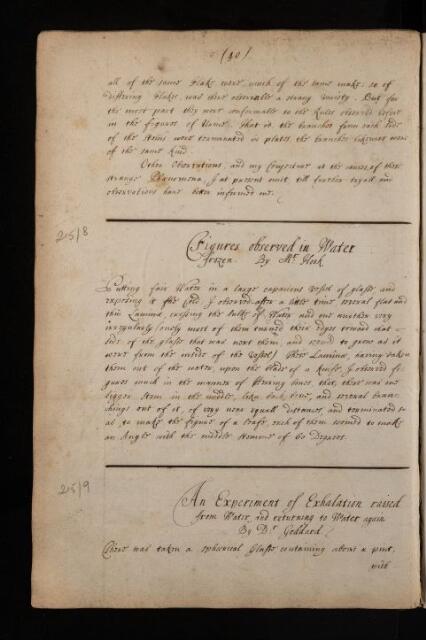 (40)
all of the same Flake were much of the same make. so of
differing Flakes was there observable a strang variety. But for
the most part they were conformable to the Rules observed before
in the figures of Vrine. that is the branches from each side
of the Stems were terminated in plates the branches
of the same kind.
Other Observations, and my Conjecture at the causes of these
strange Phænomena, I at present omit, till further tryall and
observations have better informed me.
25/8
Figures observed in Water
frozen. By Mr. Hook
Putting fair Water in a large capacious Vessel of glasse and
exposing it to the Cold I observed after a little time several flat and
thin Laminæ, crossing the bulke of Water and one another very
irregularly (onely most of them turned their edges toward that
side of the glasse that was next them, and seemd to grow as it
were from the inside of the Vessel) These Laminæ, having taken
them out of the water, upon the blade of a Knife I observed fi-
gures much in the manner of Hoary ones, that, there was one
bigger stem in the middle, like back bone, and several bran-
chings out of it, of very neer equall distances, and terminated so
as to make the figure of a leafe, each of them seemed to make
an Angle with the middle Stemme of 60 Degrees.
25/9
An Experiment of Exhalation raised
from Water, and returning to Water again
By Dr Goddard
There was taken a Spherical Glasse containing about a pint,
with